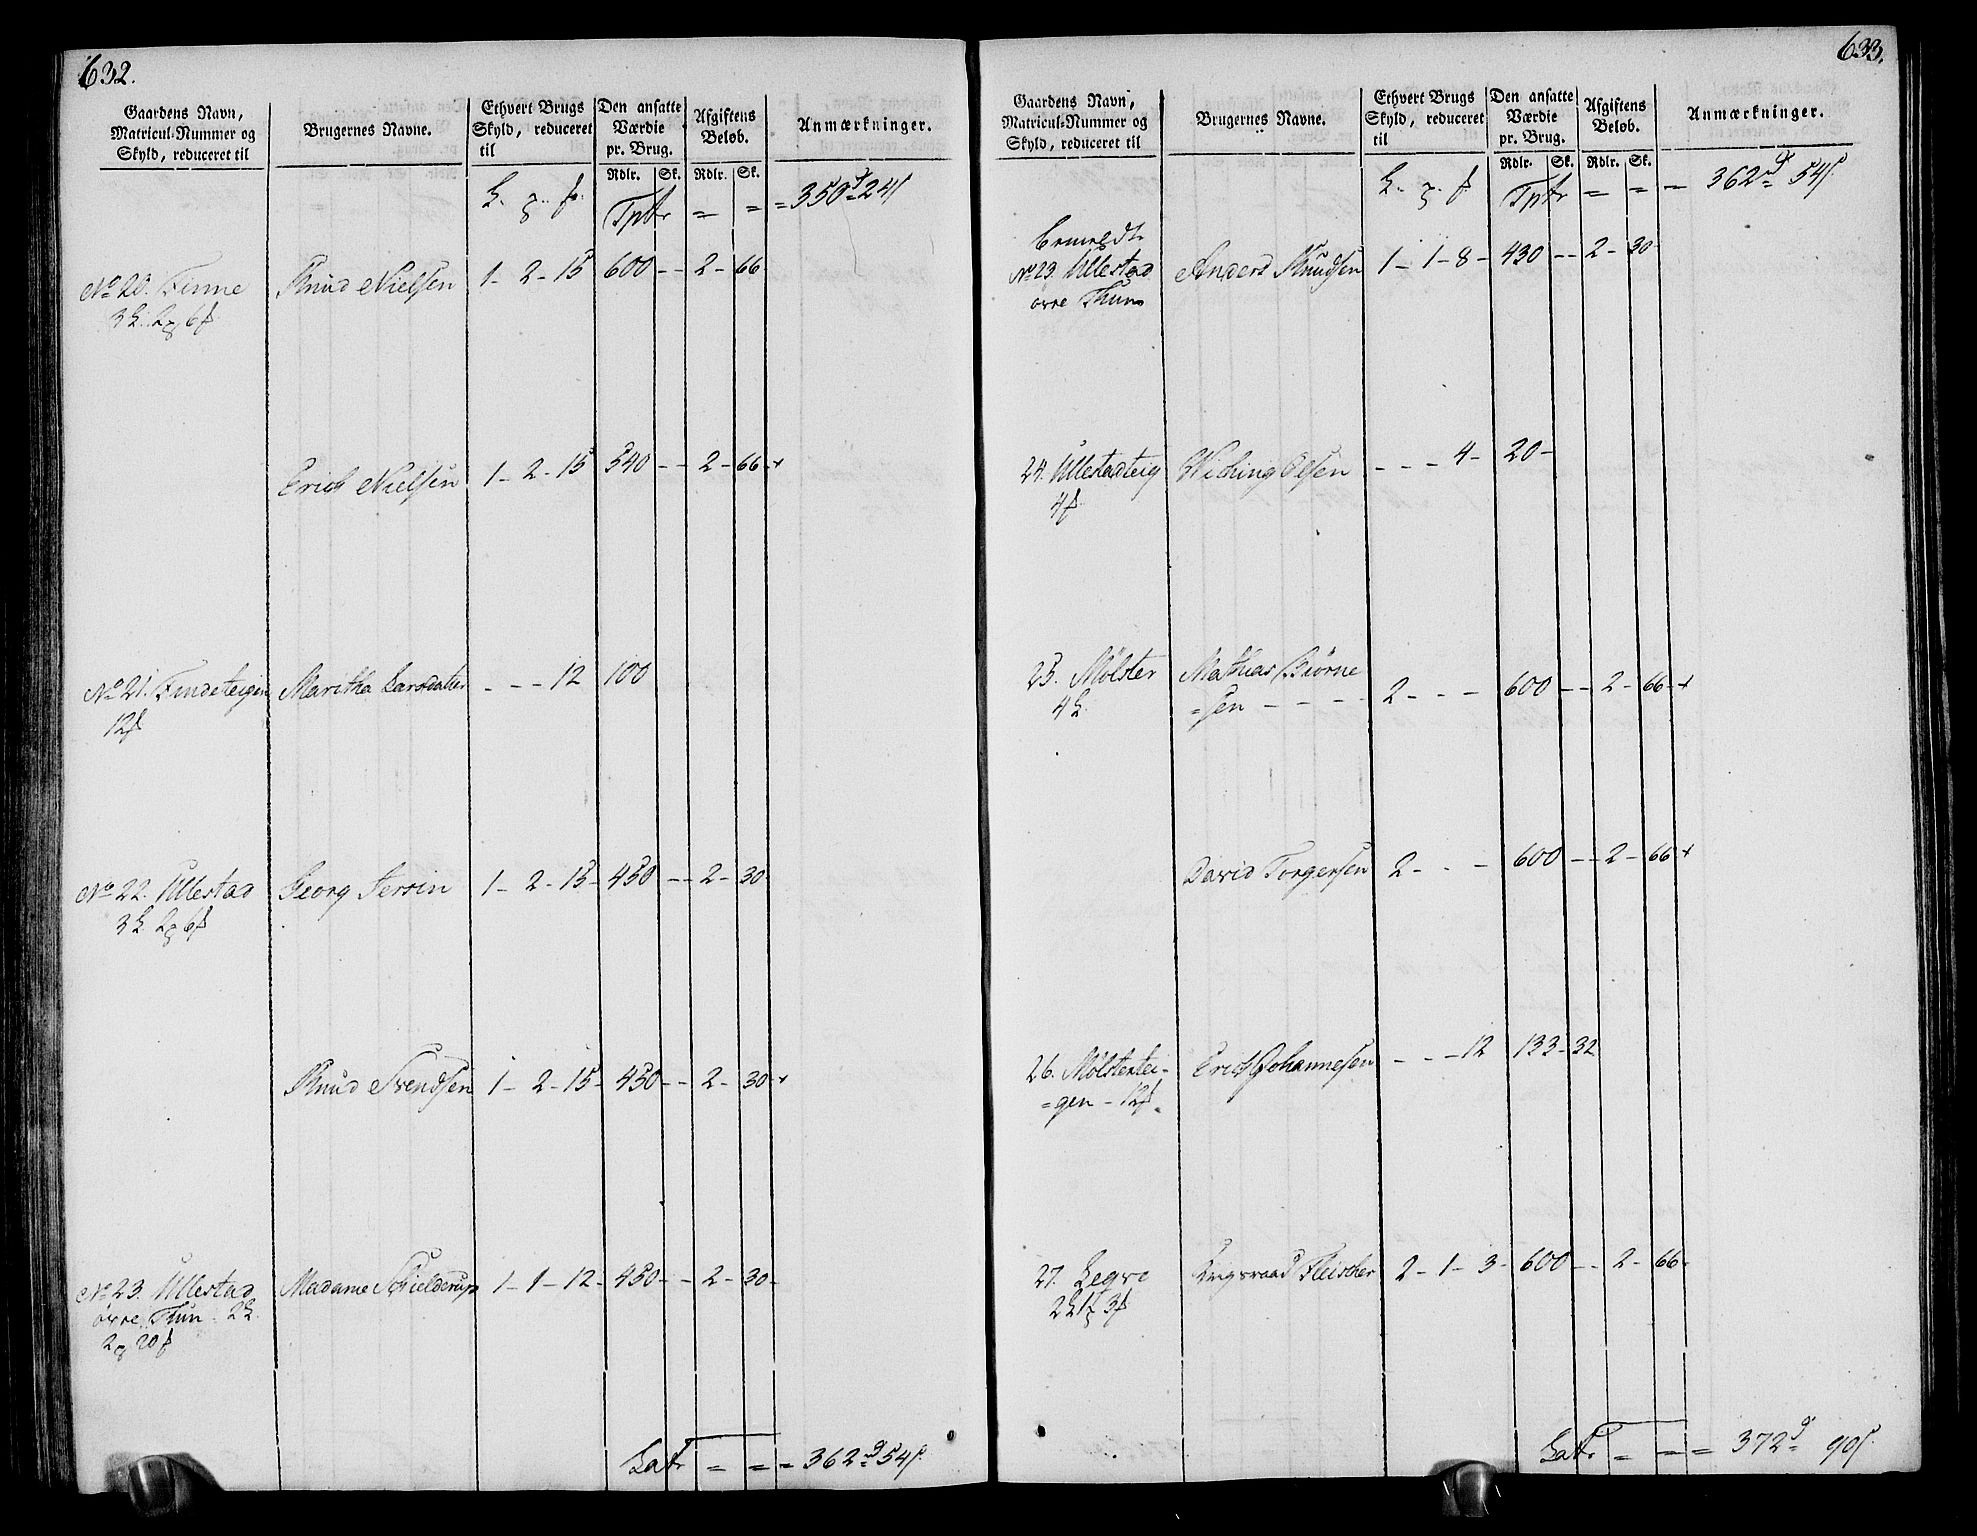 632.
Gaardens Navn, Matricul-Nummer og Skyld, reduceret til
Brugernes Navne.
Ethvert Brugs Skyld, reduceret til
Den ansatte Værdie pr. Brug.
Afgiftens Beløb.
Anmærkninger.
Rdlr. Sk. Rdlr. Sk.
Tptr = = = 350 24
No 20. Finne Knud Nielsen 1 - 2 - 15 600 - - 2 - 66
Erich Nielsen 1 - 2 - 15 540 - - 2 - 66 - +
No 21. Findeteigen Maritha Larsdatter - - - 12 100
12
No 22. Ullestad Georg 1 - 2 - 15 - 450 - - 2 - 30
Knud Svendsen 1 - 2 - 15 - 450 - - 2 - 30 - +
No 23. Ullestad Madame Schielderup 1 - 1 - 12 - 450 - - 2 - 30 -
øvre Thun 2
2 20
Lat = = = 362 54
633.
Gaardens Navn, Matricul-Nummer og Skyld, reduceret til
Brugernes Navne.
Ethvert Brugs Skyld, reduceret til
Den ansatte Værdie pr. Brug.
Afgiftens Beløb.
Anmærkninger.
Rdlr. Sk. Rdlr. Sk.
Tptr = = = 362 54
No 23. Ullestad Anders Knudsen 1 - 1 - 8 - 430 - - 2 - 30
øvre Thun
24. Ullestadteig Wiching Olsen - - - 4 - 20 -
4
25. Mölster Mathias Biörne
4 =sen - - - - 2 - - - 600 - - 2 - 66 - +
David Torgersen 2 - - - 600 - - 2 - 66 +
26. Mölstertei- Erich Johannesen - - - 12 133 - 32
=gen - 12
27. Legre Krigsraad Fleischer 2 - 1 - 3 - 600 - - 2 - 66 -
Lat = = = 372 90